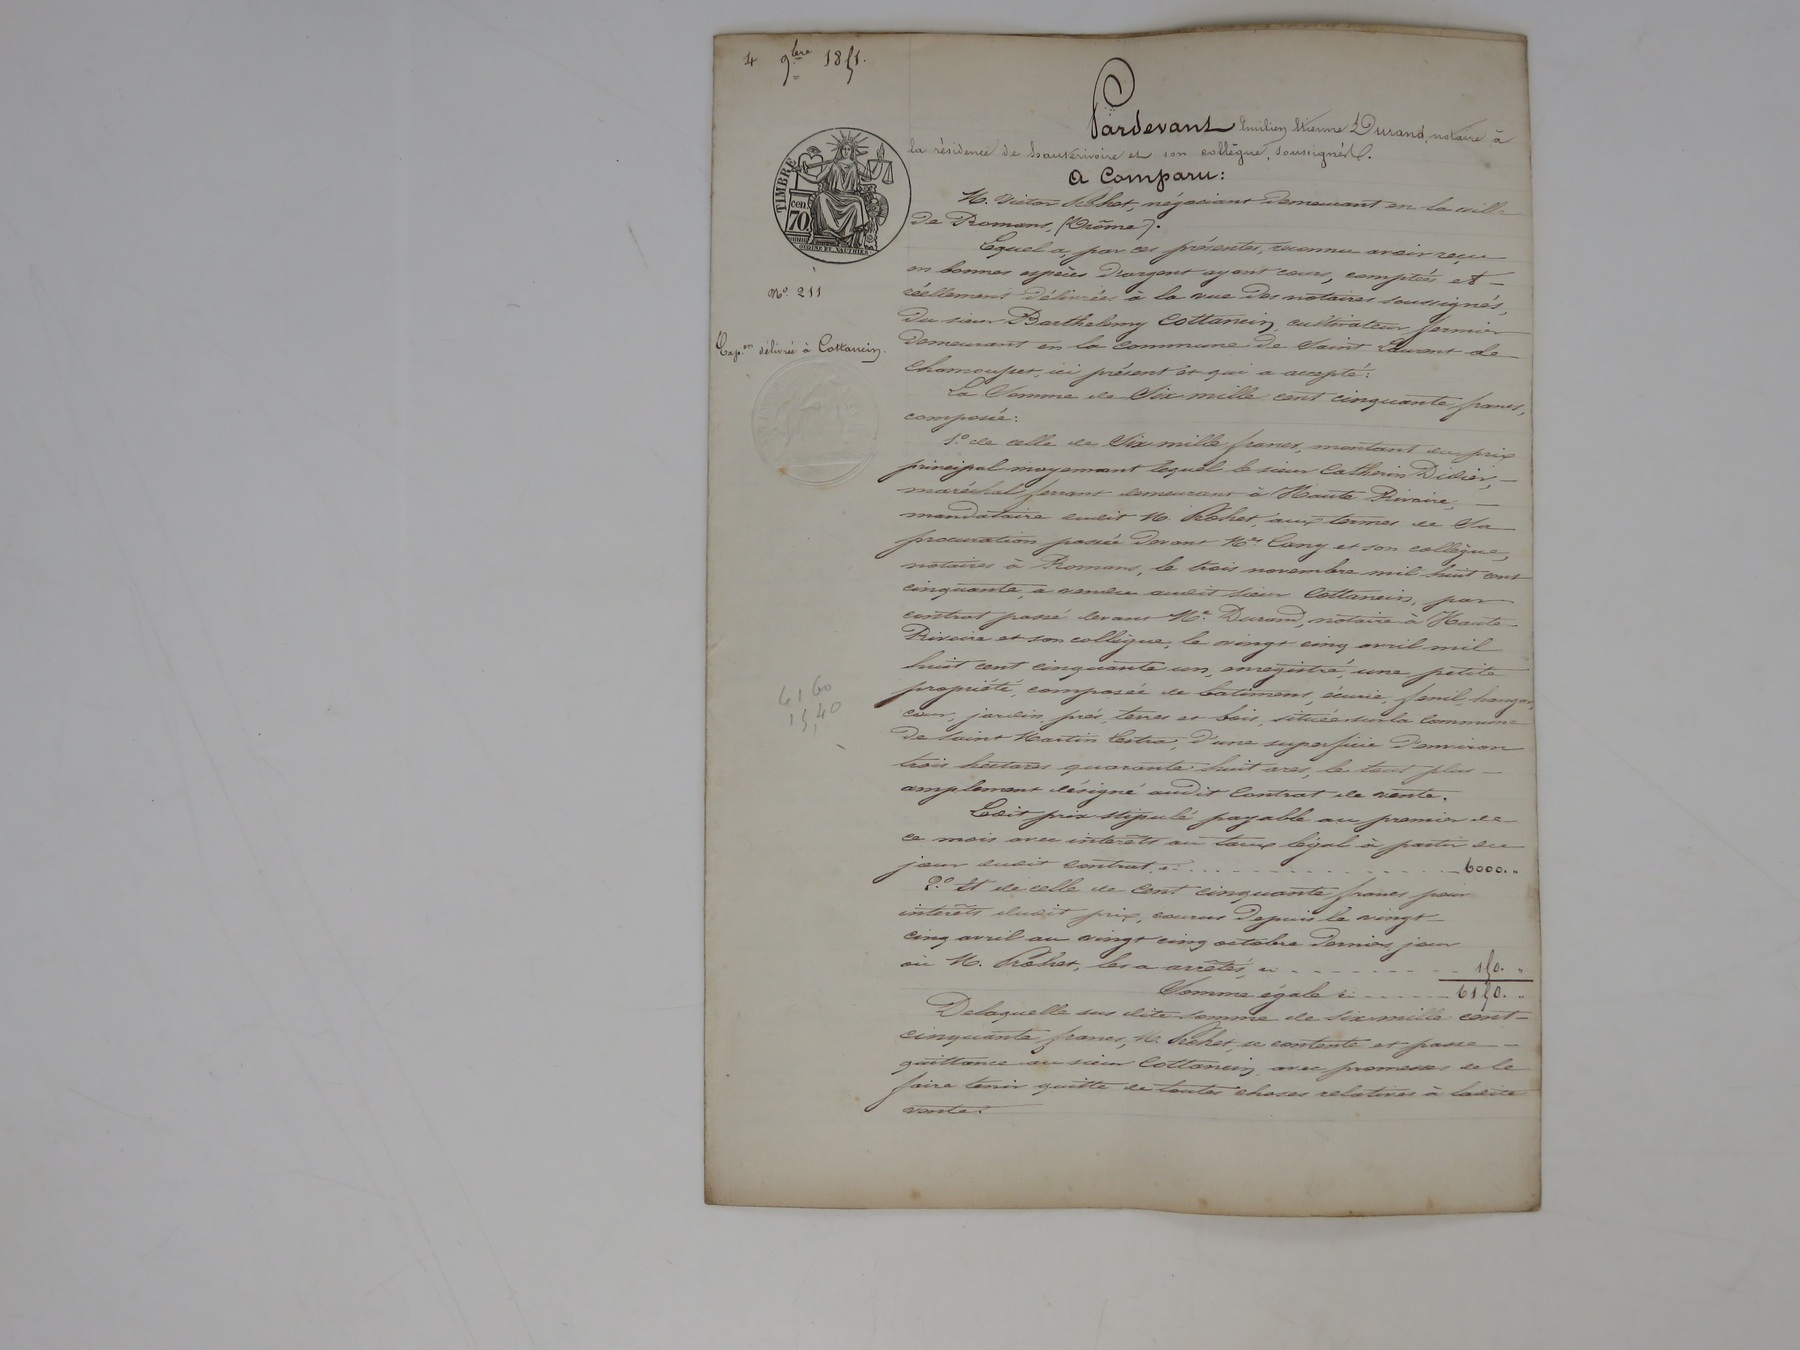 4 9bre 1851.
Pardevant Emilien Etienne Durand, notaire à
la résidence de hauterivoire et son collègue, soussignés.
A Comparu:
TIMBRE
cen. 70
OUDINE ET GAUTHIER
M. Victor Rohet, négociant demeurant en la ville
de Romans, (Drôme).
Lequel a, par ces présentes, reconnu avoir reçu
en bonnes espèces d'argent ayant cours, comptées et
réellement délivrées à la vue des notaires soussignés,
Nº 211
du sieur Barthelemy Cottancin, cultivateur fermier
Exp.on délivrée à Cottancin.
demeurant en la commune de Saint Laurent de
Chamousset, ici présent et qui a accepté:
La Somme de Six mille cent cinquante francs,
composée:
1.º de celle de Six mille francs, montant du prix
principal moyennant lequel le sieur Catherin Didier,
maréchal ferrant demeurant à Haute Rivoire,
mandataire dudit M. Rohet, aux termes de sa
procuration passée devant Me et son collègue,
notaires à Romans, le trois novembre mil huit cent
cinquante, a vendu audit sieur Cottancin, par
contrat passé devant Me Durand, notaire à Haute
Rivoire et son collègue, le vingt cinq avril mil
huit cent cinquante un, enregistré, une petite
propriété, composée de batiment, écurie, fenil, hangar,
61 60
cour, jardin, prés, terres et bois, située sur la commune
15,40
de Saint Martin Lestra, d'une superficie d'environ
trois hectares quarante huit ares, le tout plus
amplement désigné audit Contrat de vente.
Ledit prix stipulé payable au premier de
ce mois avec intérêts au taux légal à partir du
jour dudit contrat, ci 6000. "
2.º Et de celle de Cent cinquante francs pour
intérêts dudit prix, courus depuis le vingt
cinq avril au vingt cinq octobre dernier, jour
où M. Rohet, les a arrêtés, ci 150. "
Somme égale ci 6150. "
Delaquelle sus dite somme de six mille cent
cinquante francs, M. Rohet, se contente et passe
quittance au sieur Cottancin, avec promesse de le
faire tenir quitte de toutes choses relatives à ladite
vente.